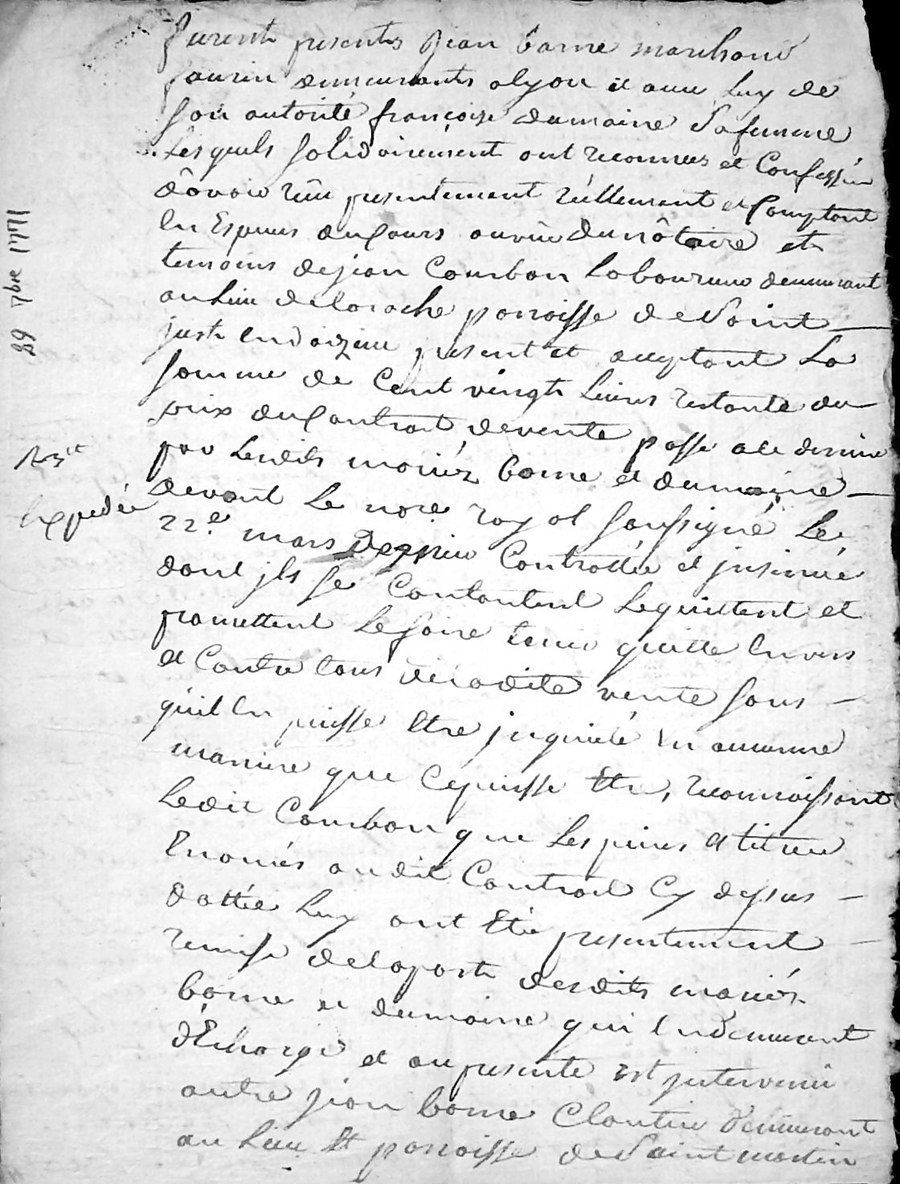 furent presents Jean barne marchand
demeurants a lyon et avec luy de
son autorite françoise dumaine Sa femme
Lesquels Solidairement ont reconnus et Confessés
d'avoir reçu presentement réellement et Comptant
En Especes du Cours au vû du nôtaire et
temoins de jean Combon Laboureur demeurant
au Lieu de la roche parroisse de Saint
just en doizieu present et acceptant La
somme de Cent vingt Livres restante du
prix du Contrat de vente passé a ce dernier
par Lesdits mariéz barne et dumaine
devant Le nore royal soussigné Le
22e mars Dernier Controllé et jnsinué
dont jls se Contentent Le quittent et
promettent Le faire tenir quitte Envers
et Contre tous de ladite vente sans
qu'il En puisse Etre jnquieté En aucunne
maniere que Ce puisse Etre, reconnoissant
Ledit Combon que Les pieces et titres
Enoncés audit Contrat Cy dessus
datté Luy ont Eté presentement
remise de la part desdits mariés
barne et dumaine qui En demeurent
d'Echargé et au presente Est jntervenu
autre jean barne Cloutier demeurant
au Lieu Et parroisse de Saint martin
29 7bre 1771
Expediée